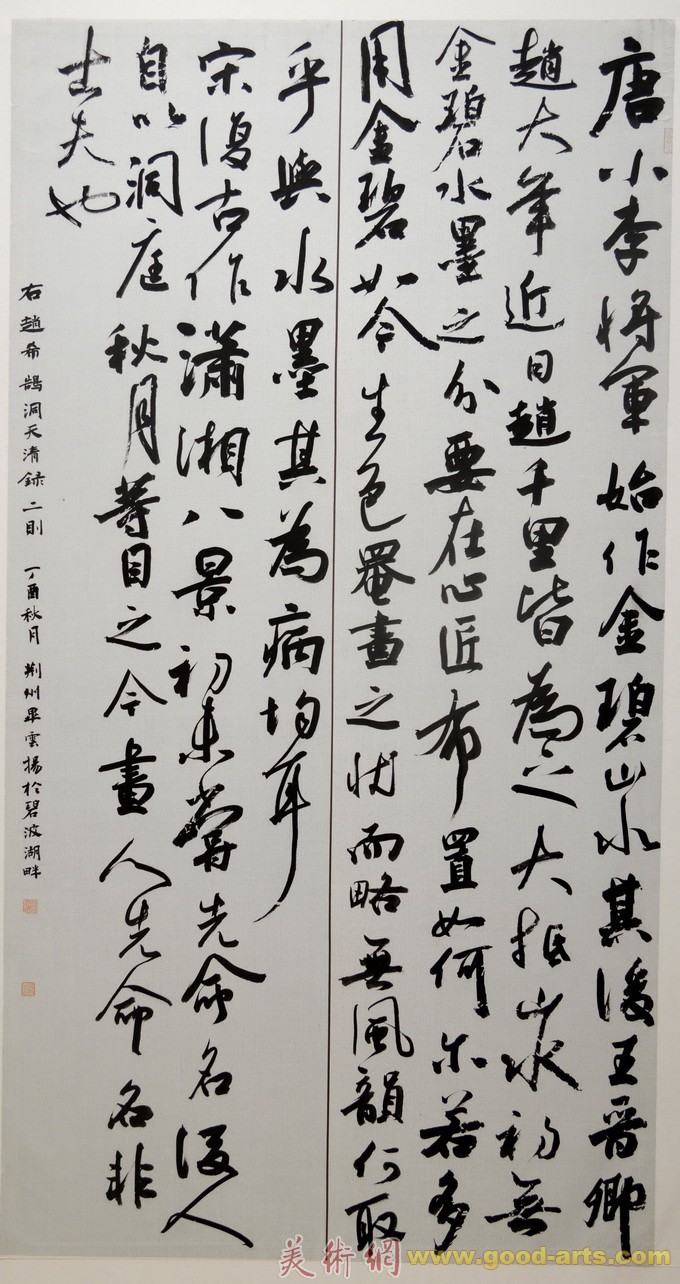 唐小李将軍始作金碧山水其後王晋卿
趙大年近日趙千里皆為之大抵山水初無
金碧水墨之分要在心匠布置如何尔若多
用金碧如今生色罨畫之状而略無風韻何取
乎與水墨其為病均耳
宋復古作瀟湘八景初未嘗先命名後人
自以洞庭秋月等目之今畫人先命名非
士夫也
右趙希鵠洞天清録二則 丁酉秋月 荆州畢雲揚於碧波湖畔
美術網 www.good-arts.com